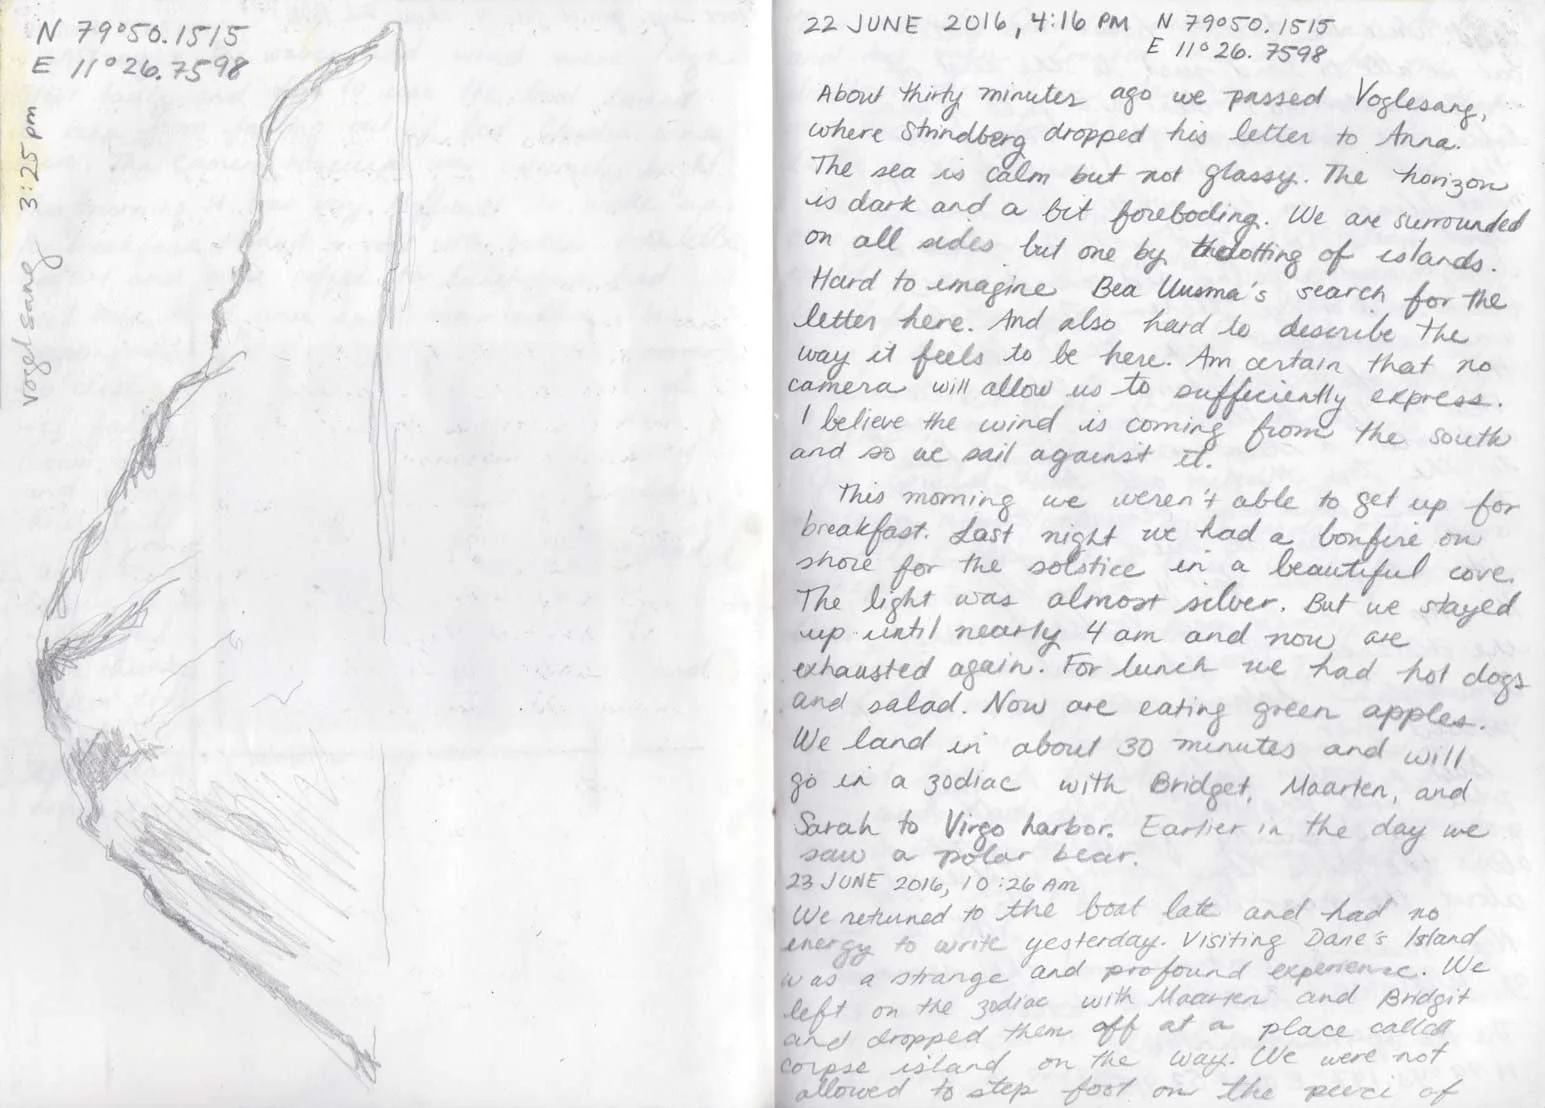 N 79°50.1515
E 11°26.7598
Vogelsang 3:25 pm
22 JUNE 2016, 4:16 PM N 79°50.1515
E 11°26.7598
About thirty minutes ago we passed Voglesang,
where Strindberg dropped his letter to Anna.
The sea is calm but not glassy. The horizon
is dark and a bit foreboding. We are surrounded
on all sides but one by the dotting of islands.
Hard to imagine Bea Uusma's search for the
letter here. And also hard to describe the
way it feels to be here. Am certain that no
camera will allow us to sufficiently express.
I believe the wind is coming from the south
and so we sail against it.
This morning we weren't able to get up for
breakfast. Last night we had a bonfire on
shore for the solstice in a beautiful cove.
The light was almost silver. But we stayed
up until nearly 4 am and now are
exhausted again. For lunch we had hot dogs
and salad. Now are eating green apples.
We land in about 30 minutes and will
go in a zodiac with Bridget, Maarten, and
Sarah to Virgo harbor. Earlier in the day we
saw a polar bear.
23 JUNE 2016, 10:26 AM
We returned to the boat late and had no
energy to write yesterday. Visiting Dane's Island
was a strange and profound experience. We
left on the zodiac with Maarten and Bridgit
and dropped them off at a place called
corpse island on the way. We were not
allowed to step foot on the peice of